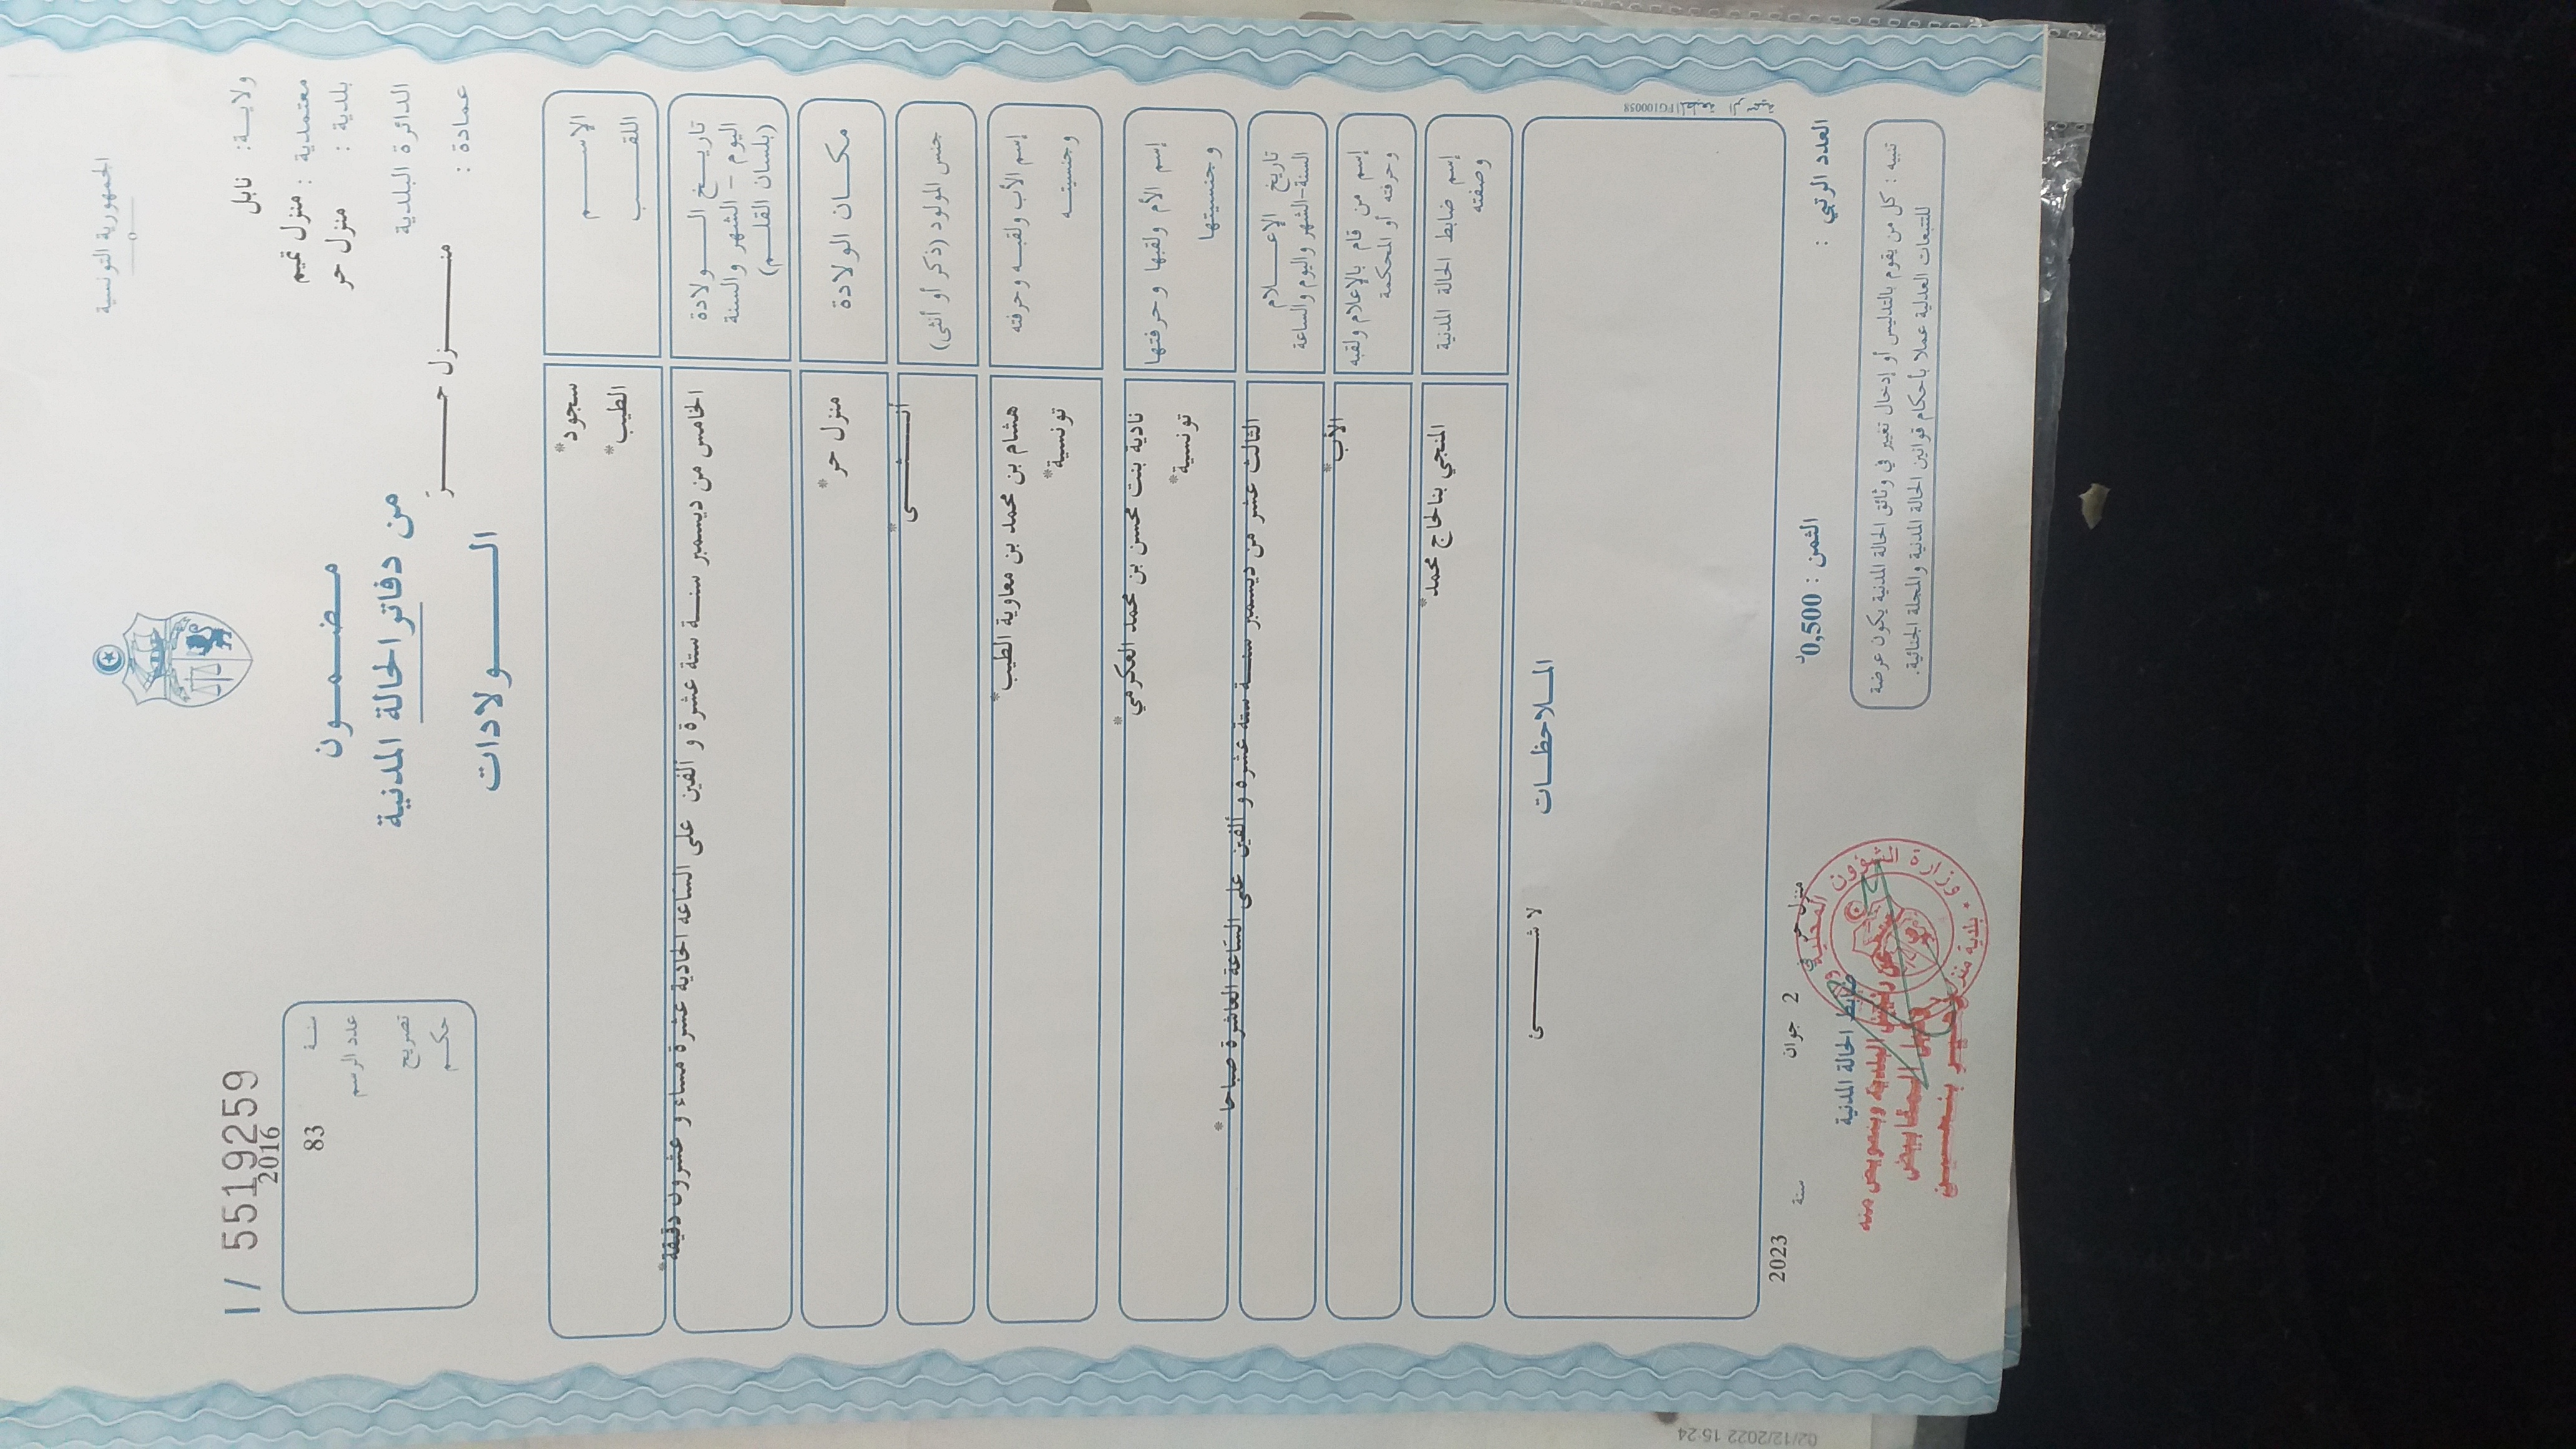 الجمهورية التونسية
ولاية: نابل
معتمدية : منزل تميم
بلدية : منزل حر
الدائرة البلدية
منـزل حـر
عمادة :
مضمون
من دفاتر الحالة المدنية
الولادات
I / 55192259
2016 سنة
83 عدد الرسم
تصريح
حكم
الإسم *سجود
اللقب *الطيب
تاريخ الولادة
اليوم - الشهر والسنة
(بلسان القلم)
الخامس من ديسمبر سنة ستة عشرة و ألفين على الساعة الحادية عشرة مساء و عشرون دقيقة*
مكان الولادة
منزل حر*
جنس المولود (ذكر أو أنثى)
أنثى*
إسم الأب ولقبه وحرفته
هشام بن محمد بن معاوية الطيب*
وجنسيته
تونسية*
إسم الأم ولقبها وحرفتها
نادية بنت محسن بن محمد العكرمي*
وجنسيتها
تونسية*
تاريخ الإعلام
السنة-الشهر واليوم والساعة
الثالث عشر من ديسمبر سنة ستة عشرة و ألفين على الساعة العاشرة صباحا*
إسم من قام بالإعلام ولقبه
وحرفته أو المحكمة
الأب*
إسم ضابط الحالة المدنية
وصفته
المنجي بنالحاج محمد*
الملاحظات
لا شئ
المطبعة الرسمية
FG100058
العدد الرتبي :
الثمن : 0,500د
منزل حر في 2 جوان سنة 2023
ضابط الحالة المدنية
تنبيه : كل من يقوم بالتدليس أو إدخال تغيير في وثائق الحالة المدنية يكون عرضة
للتتبعات العدلية عملا بأحكام قوانين الحالة المدنية والمجلة الجنائية.
عن رئيس البلدية وبتفويض منه
02/12/2022 15:24